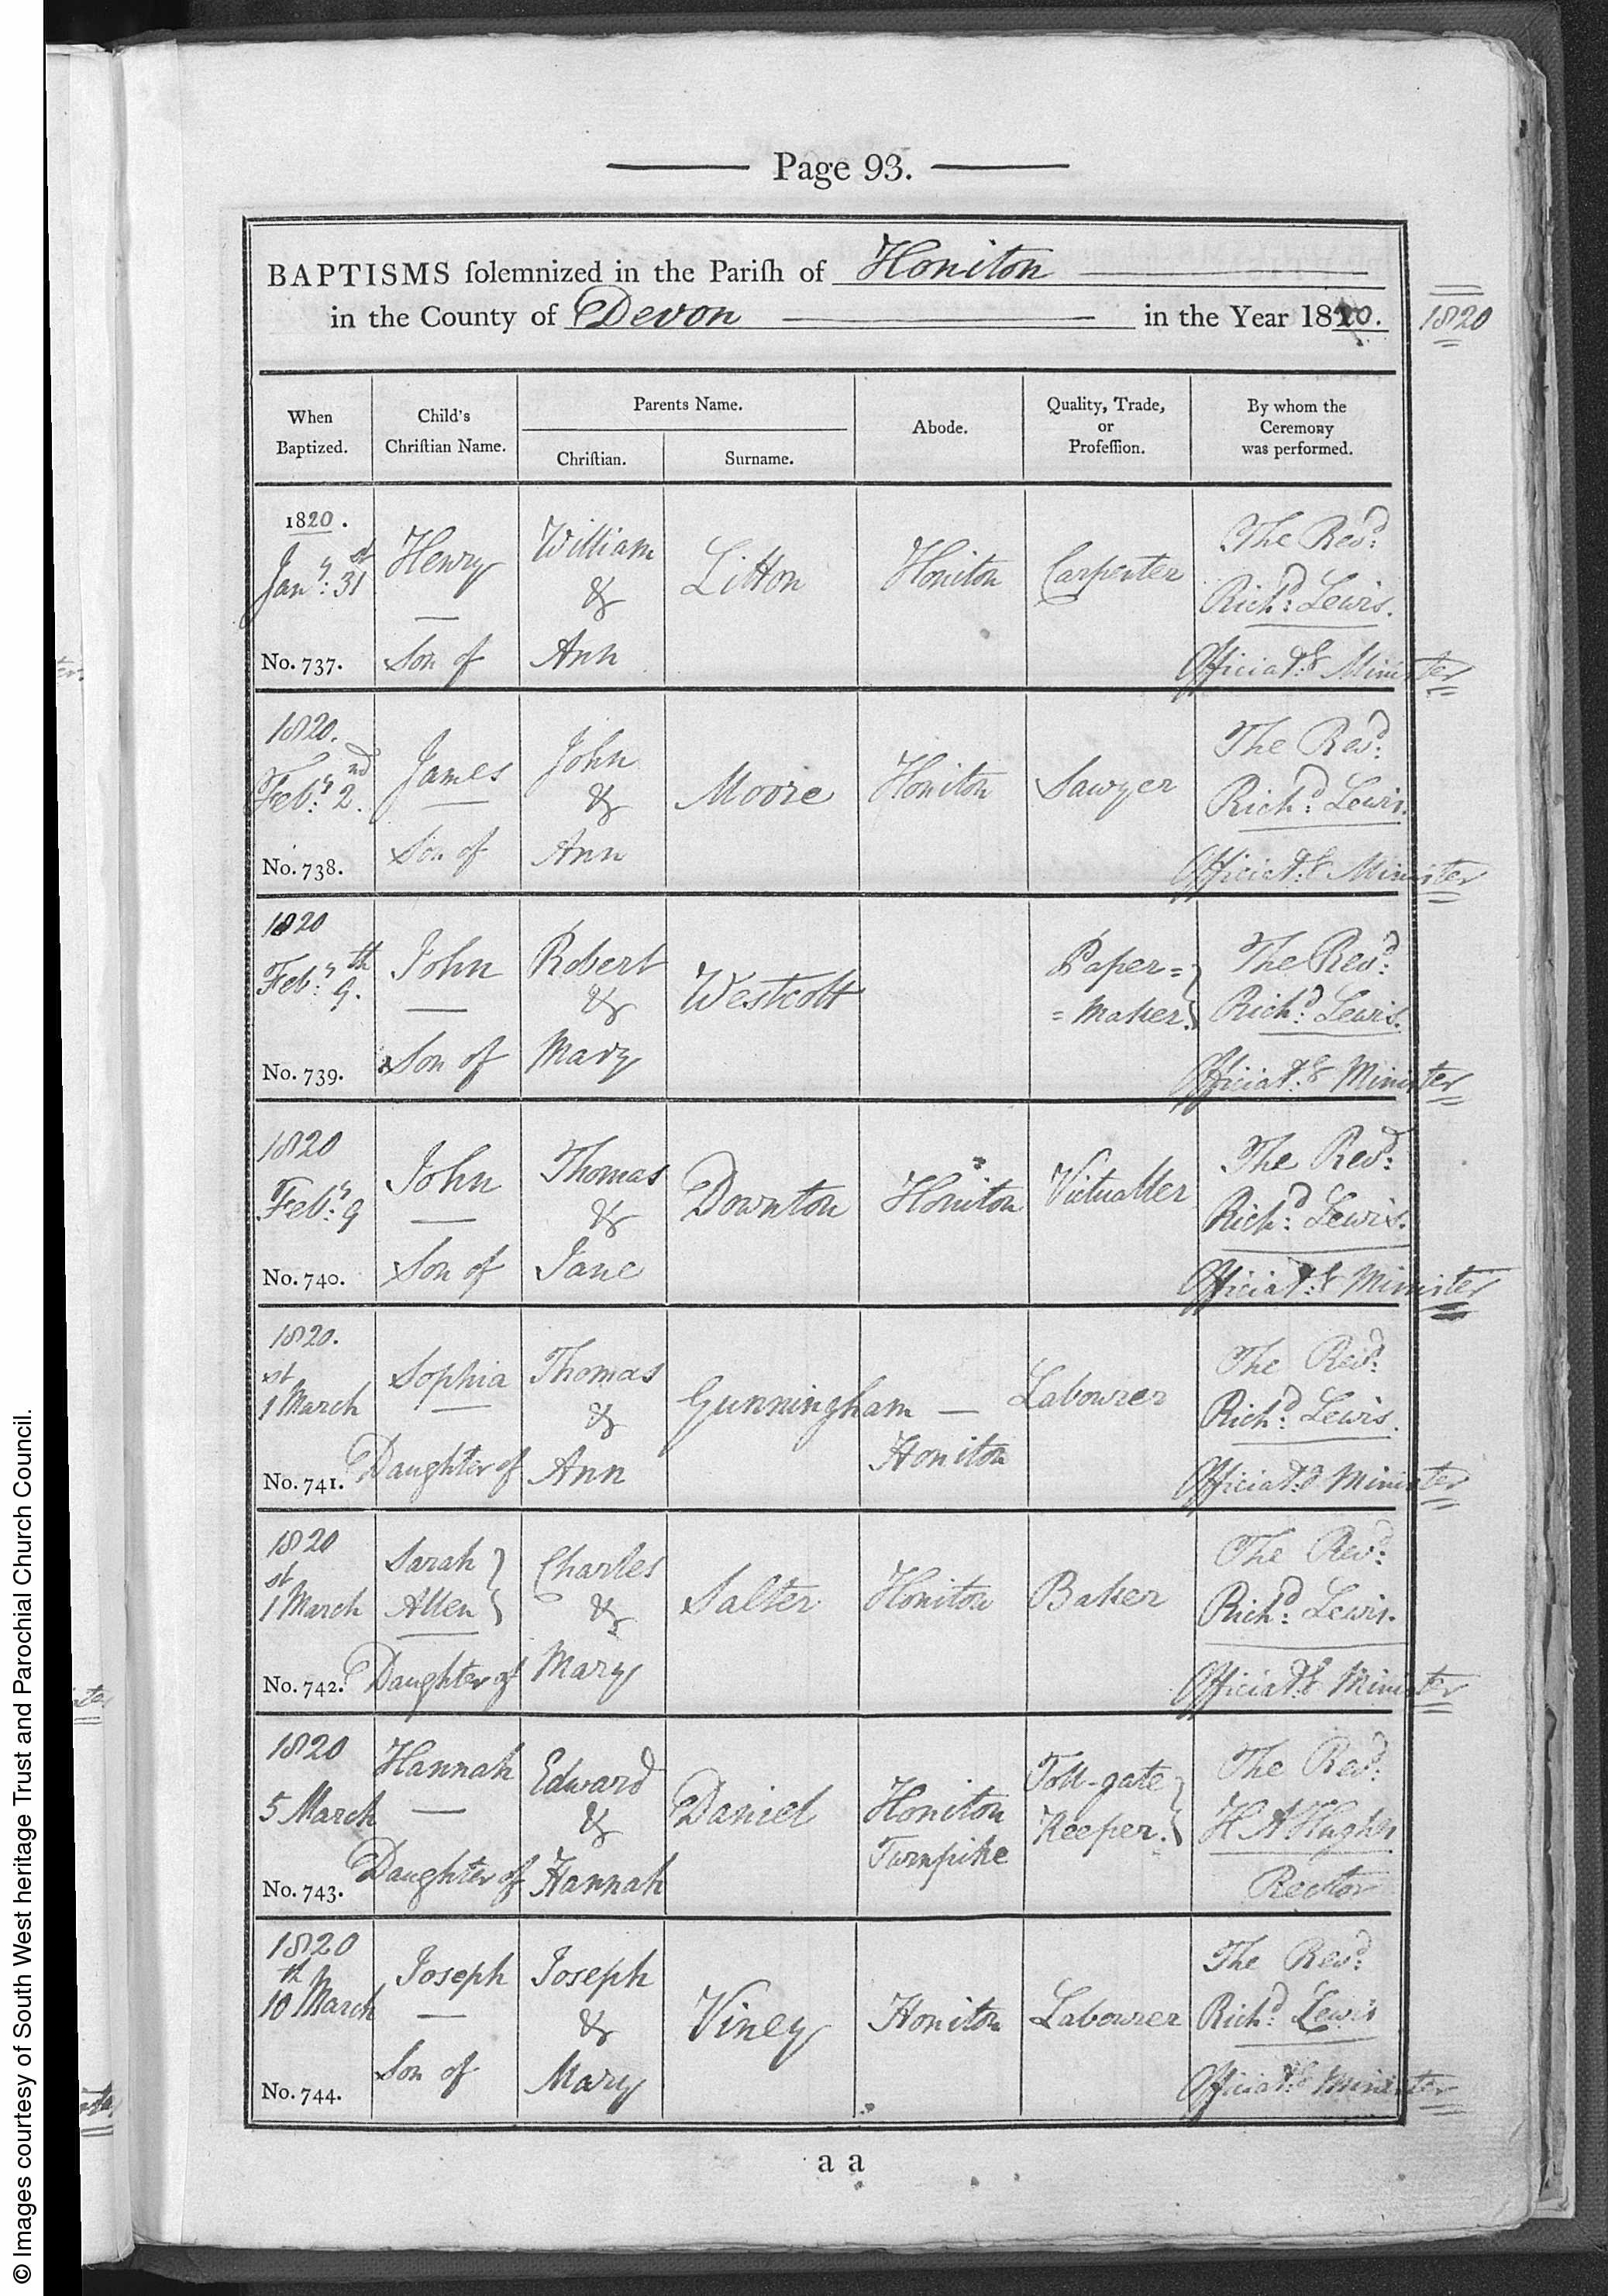 Page 93.
BAPTISMS ſolemnized in the Pariſh of Honiton
in the County of Devon in the Year 1820.
1820
When Baptized.
Child's Chriſtian Name.
Parents Name.
Chriſtian.
Surname.
Abode.
Quality, Trade, or Profeſſion.
By whom the Ceremony was performed.
1820.
Jany: 31st
No. 737.
Henry
Son of
William
&
Ann
Litton
Honiton
Carpenter
The Revd:
Richd: Lewis.
Officiatg: Minister
1820.
Feby: 2nd.
No. 738.
James
Son of
John
&
Ann
Moore
Honiton
Sawyer
The Revd:
Richd: Lewis.
Officiatg: Minister
1820
Feby: 9th.
No. 739.
John
Son of
Robert
&
Mary
Westcott
Paper=
=Maker.
The Revd:
Richd: Lewis.
Officiatg: Minister
1820
Feby: 9
No. 740.
John
Son of
Thomas
&
Jane
Downton
Honiton
Victualler
The Revd:
Richd: Lewis.
Officiatg: Minister
1820.
1st March
No. 741.
Sophia
Daughter of
Thomas
&
Ann
Gunningham —
Honiton
Labourer
The Revd:
Richd: Lewis.
Officiatg: Minister
1820
1st March
No. 742.
Sarah
Allen
Daughter of
Charles
&
Mary
Salter
Honiton
Baker
The Revd:
Richd: Lewis.
Officiatg: Minister
1820
5 March
No. 743.
Hannah
Daughter of
Edward
&
Hannah
Daniel
Honiton
Turnpike
Toll-gate
Keeper.
The Revd:
H A Hughes
Rector
1820
10th March
No. 744.
Joseph
Son of
Joseph
&
Mary
Viney
Honiton
Labourer
The Revd:
Richd: Lewis
Officiatg: Minister
a a
© Images courtesy of South West heritage Trust and Parochial Church Council.